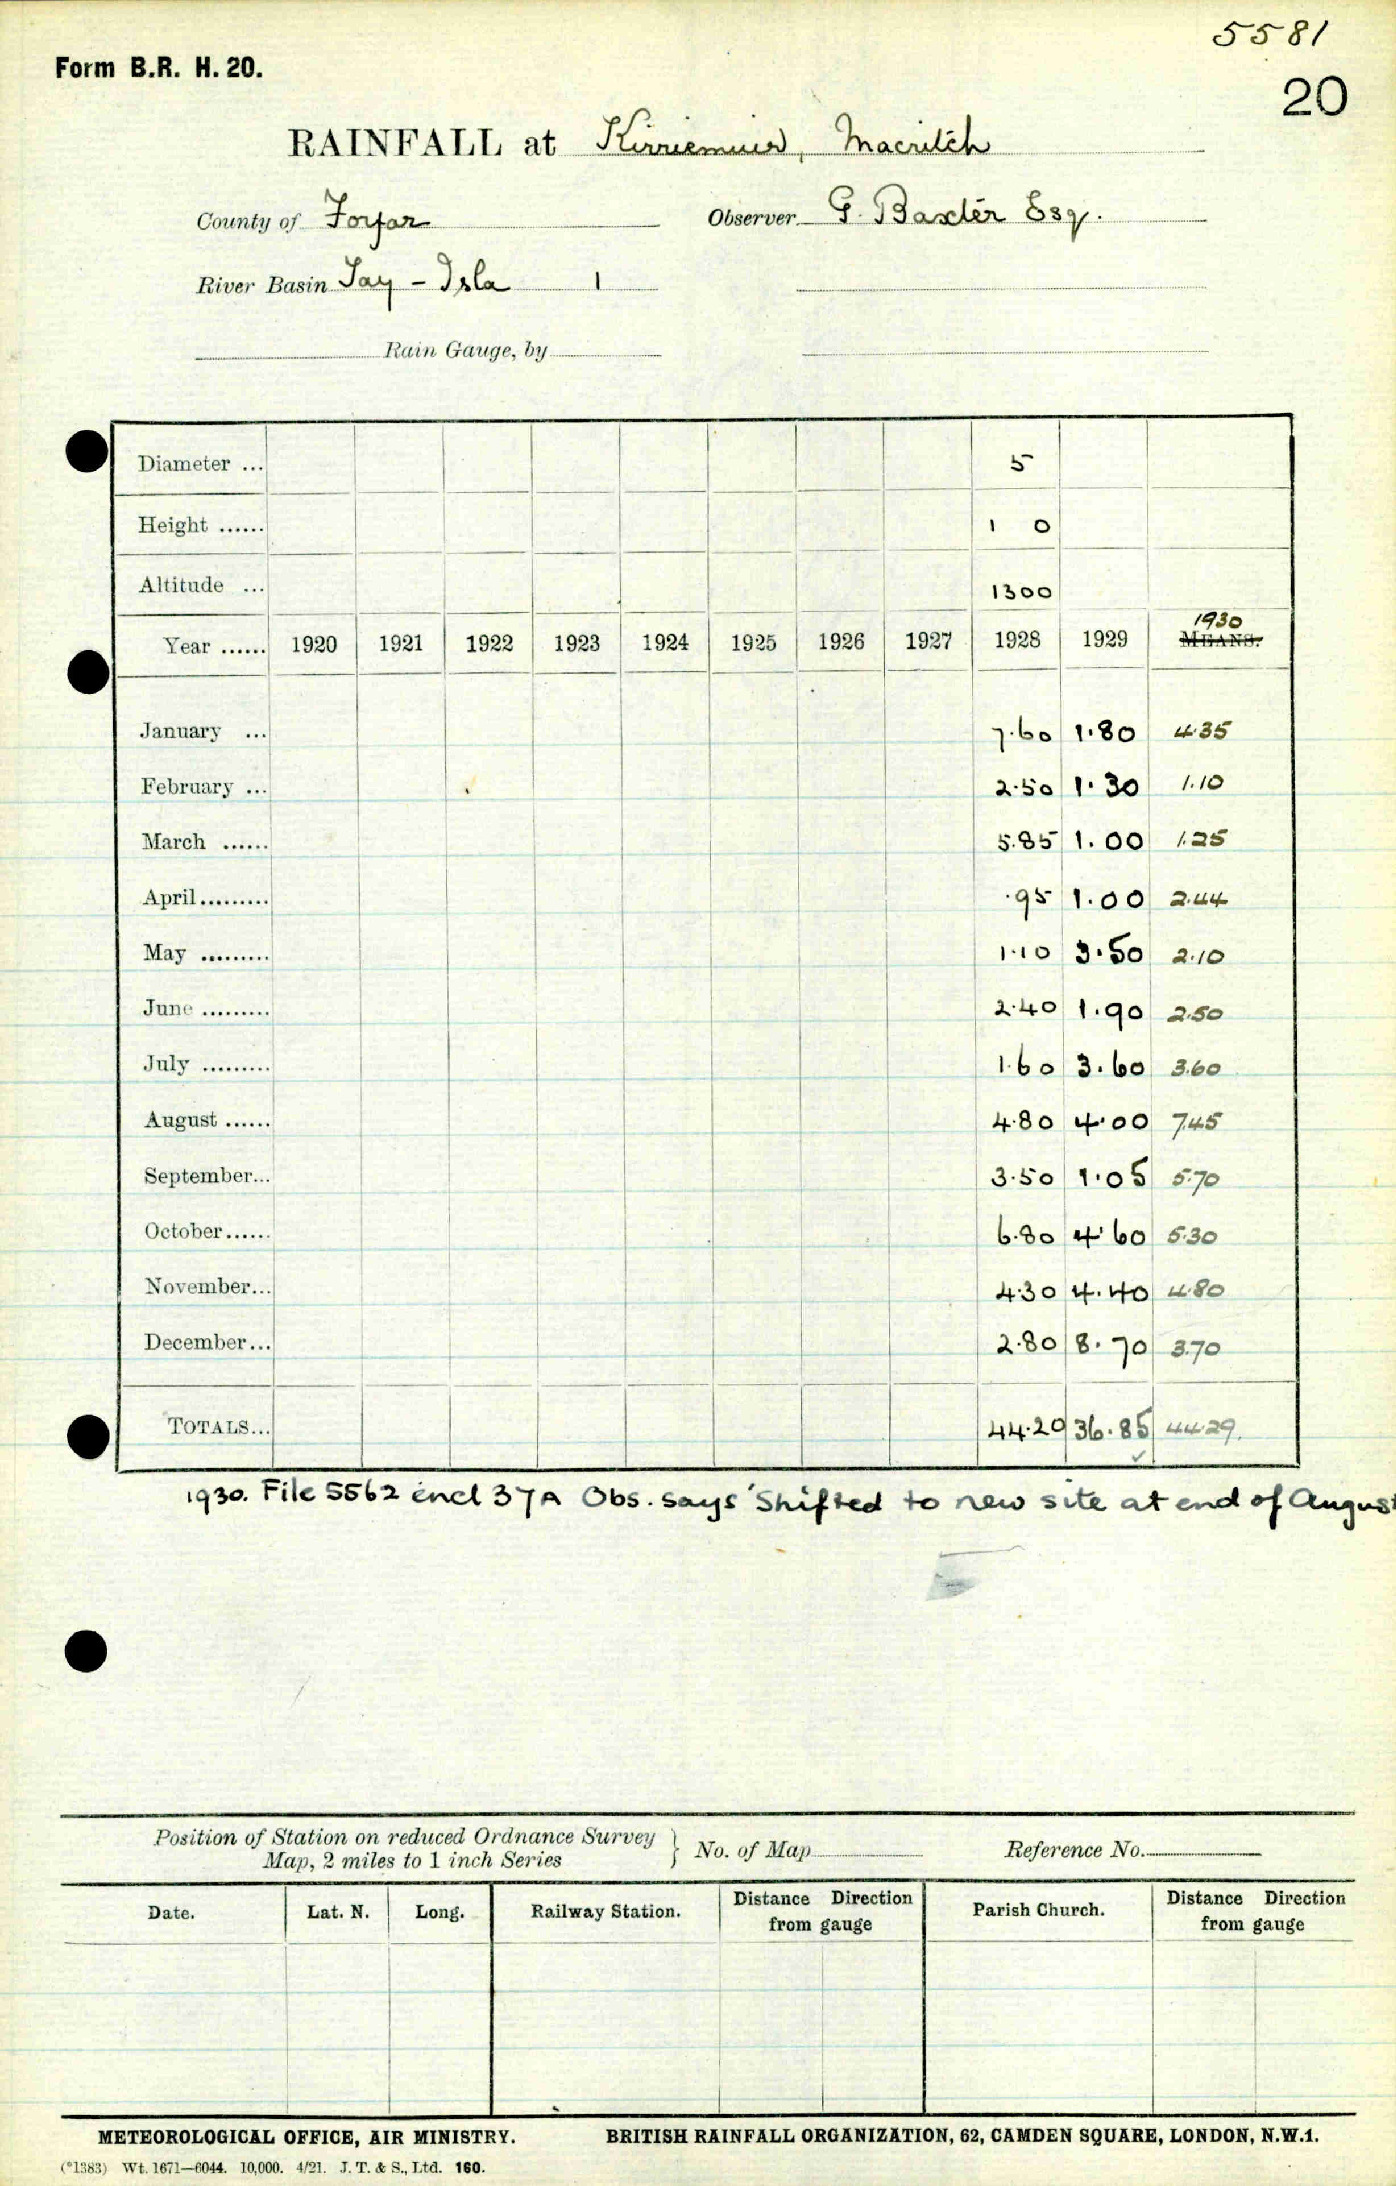 5581
Form B.R. H. 20.
20
RAINFALL at Kirriemuir, Macritch
County of Forfar Observer G. Baxter Esq.
River Basin Tay - Isla 1
Rain Gauge, by
Diameter ... 5
Height ...... 1 0
Altitude ... 1300
Year ...... 1920 1921 1922 1923 1924 1925 1926 1927 1928 1929 1930 MEANS.
January ... 7.60 1.80 4.35
February ... 2.50 1.30 1.10
March ...... 5.85 1.00 1.25
April......... .95 1.00 2.44
May ......... 1.10 3.50 2.10
June ......... 2.40 1.90 2.50
July ......... 1.60 3.60 3.60
August ...... 4.80 4.00 7.45
September... 3.50 1.05 5.70
October...... 6.80 4.60 5.30
November... 4.30 4.40 4.80
December... 2.80 8.70 3.70
TOTALS... 44.20 36.85 44.29.
1930. File 5562 encl 37A Obs. says 'Shifted to new site at end of August
Position of Station on reduced Ordnance Survey Map, 2 miles to 1 inch Series } No. of Map Reference No.
Date. Lat. N. Long. Railway Station. Distance Direction from gauge Parish Church. Distance Direction from gauge
METEOROLOGICAL OFFICE, AIR MINISTRY. BRITISH RAINFALL ORGANIZATION, 62, CAMDEN SQUARE, LONDON, N.W.1.
(*1383) Wt. 1671—6044. 10,000. 4/21. J. T. & S., Ltd. 160.